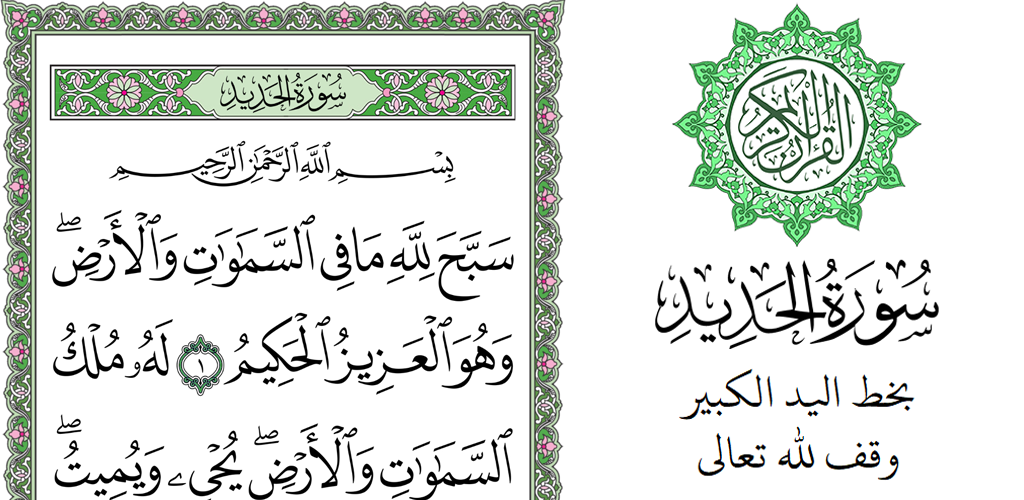 سُورَةُ الْحَدِيدِ
بِسْمِ ٱللَّهِ ٱلرَّحْمَٰنِ ٱلرَّحِيمِ
سَبَّحَ لِلَّهِ مَا فِي ٱلسَّمَٰوَٰتِ وَٱلْأَرْضِۖ
وَهُوَ ٱلْعَزِيزُ ٱلْحَكِيمُ ١ لَهُۥ مُلْكُ
ٱلسَّمَٰوَٰتِ وَٱلْأَرْضِۖ يُحْيِۦ وَيُمِيتُۖ
القرآن الكريم
سُورَةُ الْحَدِيدِ
بخط اليد الكبير
وقف لله تعالى